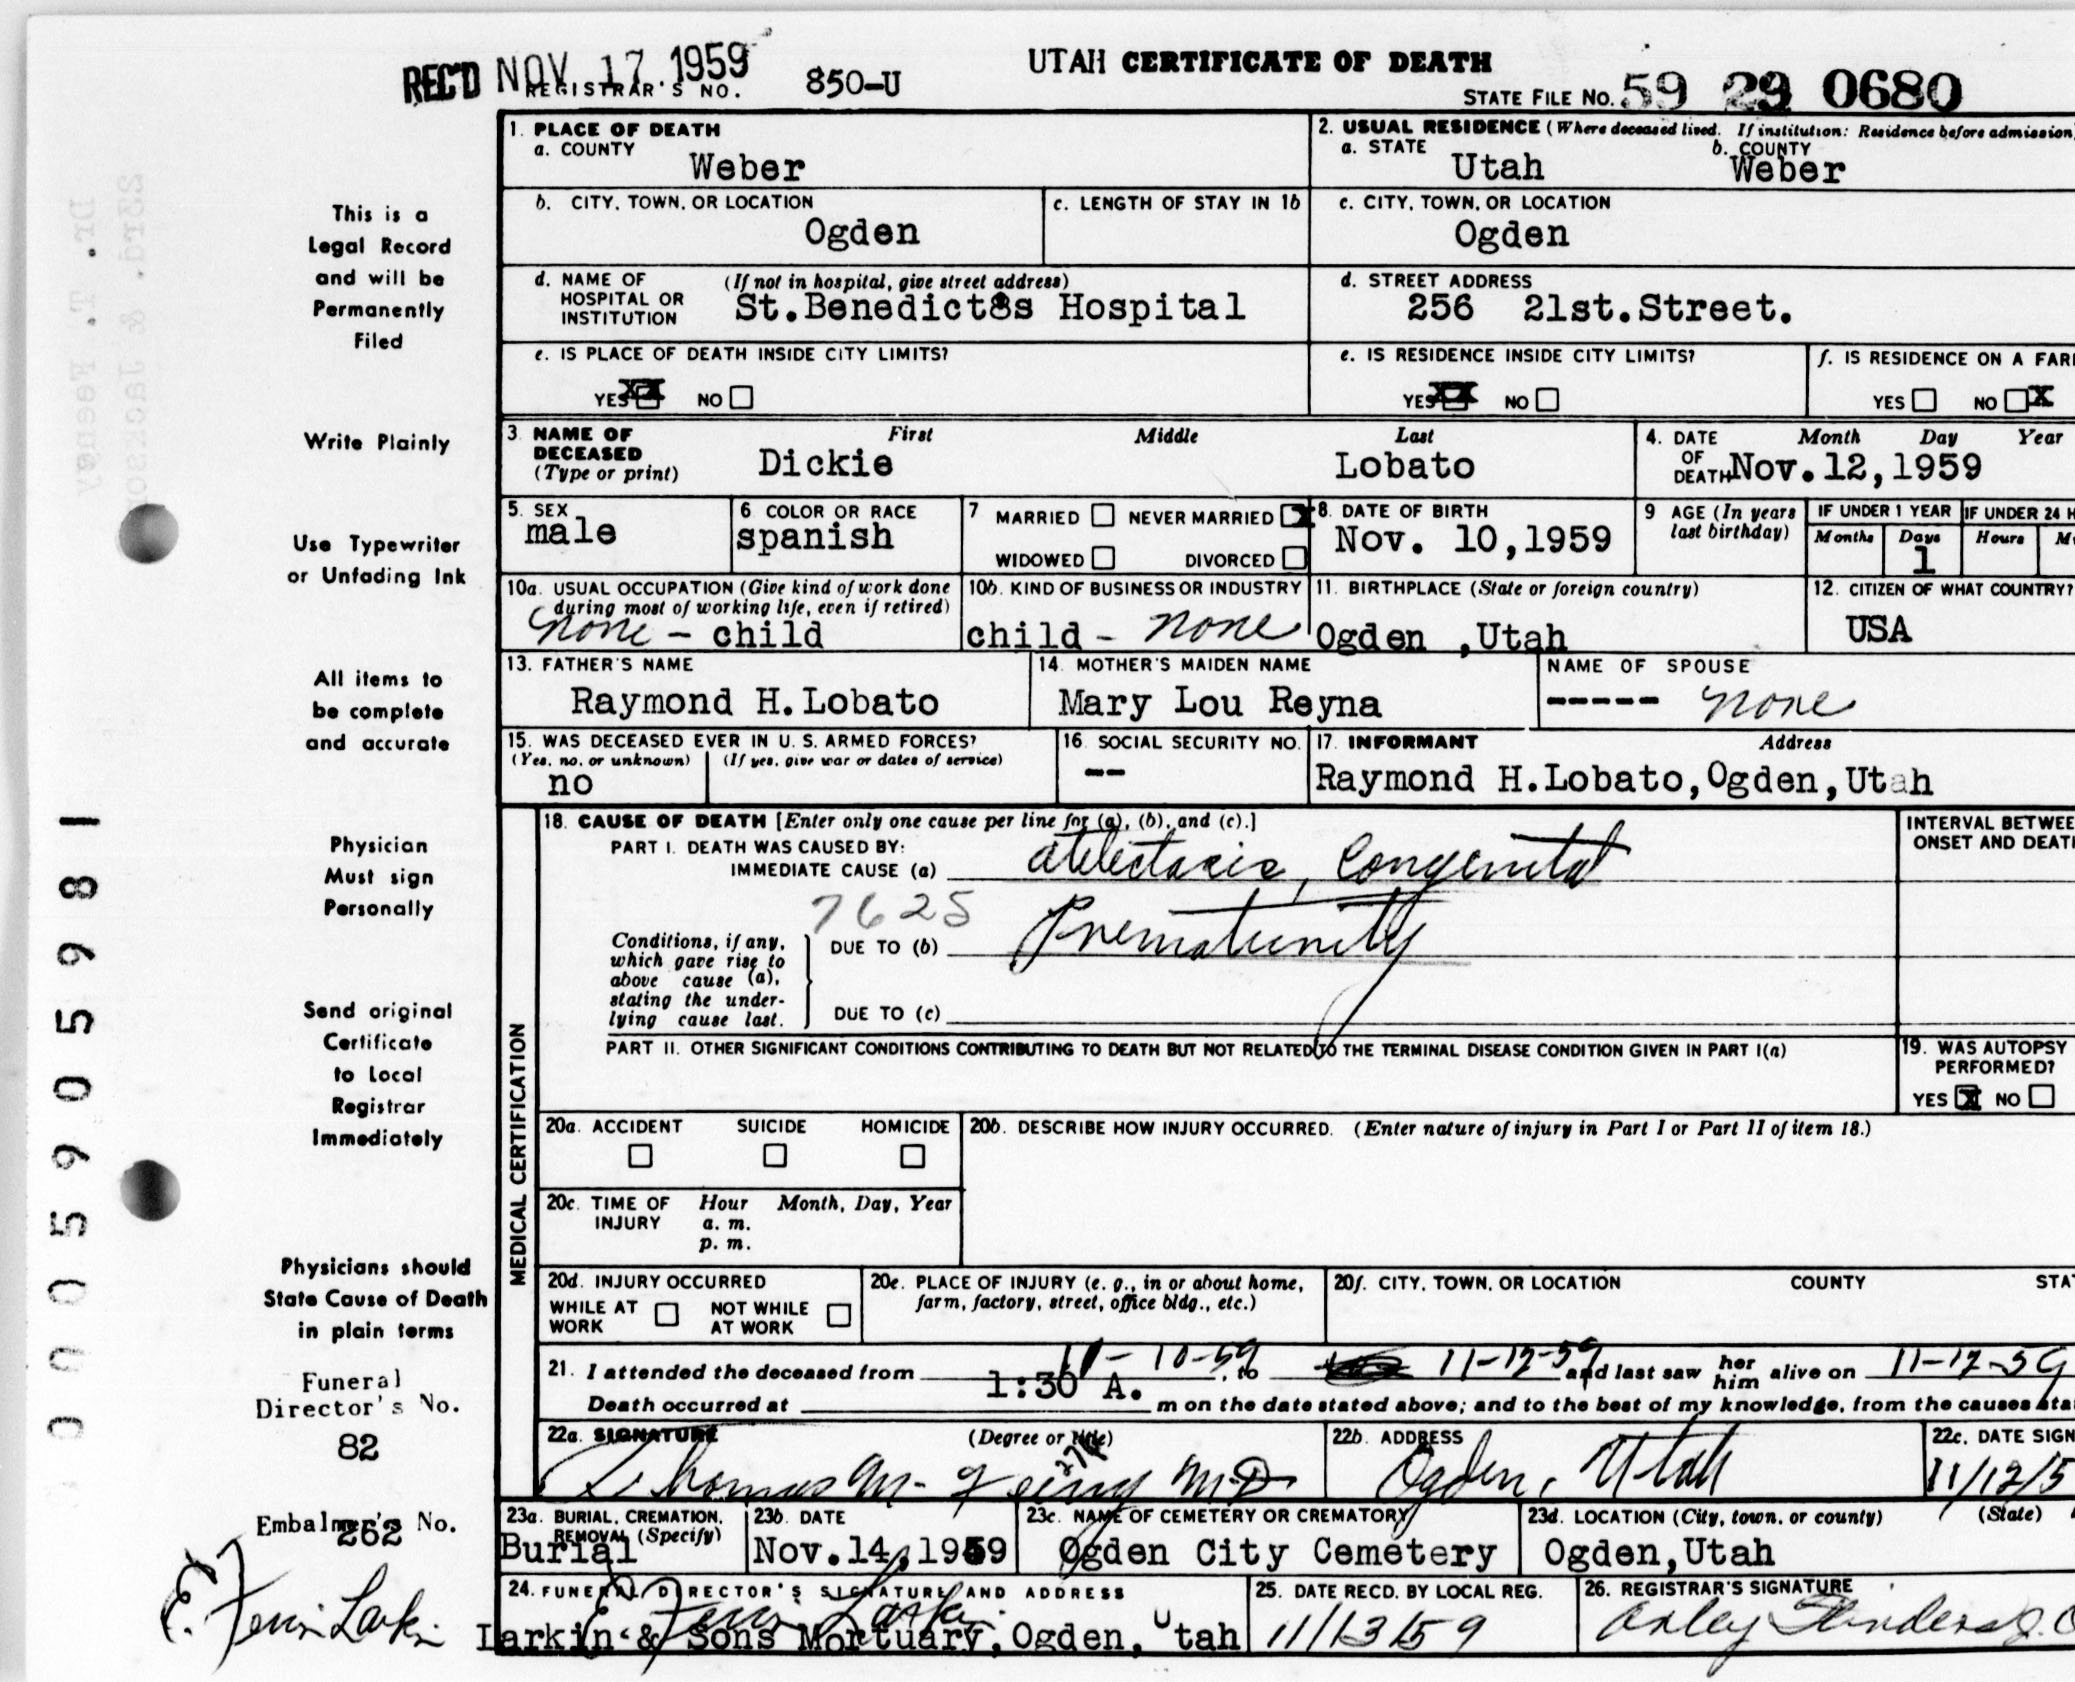 REC'D NOV 17 1959
REGISTRAR'S NO. 850-U
UTAH CERTIFICATE OF DEATH
STATE FILE NO. 59 29 0680
1. PLACE OF DEATH
a. COUNTY
Weber
2. USUAL RESIDENCE (Where deceased lived. If institution: Residence before admission)
a. STATE
Utah
b. COUNTY
Weber
b. CITY, TOWN, OR LOCATION
Ogden
c. LENGTH OF STAY IN 1b
c. CITY, TOWN, OR LOCATION
Ogden
d. NAME OF HOSPITAL OR INSTITUTION
(If not in hospital, give street address)
St.Benedict8s Hospital
d. STREET ADDRESS
256 21st.Street.
e. IS PLACE OF DEATH INSIDE CITY LIMITS?
YES NO
e. IS RESIDENCE INSIDE CITY LIMITS?
YES NO
f. IS RESIDENCE ON A FAR
YES NO X
3. NAME OF DECEASED
(Type or print)
First Middle Last
Dickie Lobato
4. DATE OF DEATH
Month Day Year
Nov.12,1959
5. SEX
male
6 COLOR OR RACE
spanish
7 MARRIED NEVER MARRIED X
WIDOWED DIVORCED
8. DATE OF BIRTH
Nov. 10,1959
9 AGE (In years last birthday)
IF UNDER 1 YEAR
Months Days
1
IF UNDER 24 H
Hours M
10a. USUAL OCCUPATION (Give kind of work done during most of working life, even if retired)
none - child
10b. KIND OF BUSINESS OR INDUSTRY
child - none
11. BIRTHPLACE (State or foreign country)
Ogden ,Utah
12. CITIZEN OF WHAT COUNTRY?
USA
13. FATHER'S NAME
Raymond H.Lobato
14. MOTHER'S MAIDEN NAME
Mary Lou Reyna
NAME OF SPOUSE
----- none
15. WAS DECEASED EVER IN U. S. ARMED FORCES?
(Yes, no, or unknown) (If yes, give war or dates of service)
no
16. SOCIAL SECURITY NO.
--
17. INFORMANT Address
Raymond H.Lobato,Ogden,Utah
MEDICAL CERTIFICATION
18. CAUSE OF DEATH [Enter only one cause per line for (a), (b), and (c).]
PART I. DEATH WAS CAUSED BY:
IMMEDIATE CAUSE (a) atelectasis, Congenital
7625
Conditions, if any, which gave rise to above cause (a), stating the underlying cause last.
DUE TO (b) Prematurity
DUE TO (c)
INTERVAL BETWEE
ONSET AND DEAT
PART II. OTHER SIGNIFICANT CONDITIONS CONTRIBUTING TO DEATH BUT NOT RELATED TO THE TERMINAL DISEASE CONDITION GIVEN IN PART I(a)
19. WAS AUTOPSY PERFORMED?
YES X NO
20a. ACCIDENT SUICIDE HOMICIDE
20b. DESCRIBE HOW INJURY OCCURRED. (Enter nature of injury in Part I or Part II of item 18.)
20c. TIME OF INJURY
Hour Month, Day, Year
a. m.
p. m.
20d. INJURY OCCURRED
WHILE AT WORK NOT WHILE AT WORK
20e. PLACE OF INJURY (e. g., in or about home, farm, factory, street, office bldg., etc.)
20f. CITY, TOWN, OR LOCATION COUNTY STA
21. I attended the deceased from 11-10-59, to 11-12-59 and last saw her him alive on 11-12-59
Death occurred at 1:30 A. m on the date stated above; and to the best of my knowledge, from the causes sta
22a. SIGNATURE (Degree or title)
Thomas M. Feeny M.D
22b. ADDRESS
Ogden, Utah
22c. DATE SIGN
11/12/5
23a. BURIAL, CREMATION, REMOVAL (Specify)
Burial
23b. DATE
Nov.14,1959
23c. NAME OF CEMETERY OR CREMATORY
Ogden City Cemetery
23d. LOCATION (City, town, or county) (State)
Ogden,Utah
24. FUNERAL DIRECTOR'S SIGNATURE AND ADDRESS
Larkin & Sons Mortuary,Ogden, Utah
25. DATE RECD. BY LOCAL REG.
11/13/59
26. REGISTRAR'S SIGNATURE
This is a
Legal Record
and will be
Permanently
Filed
Write Plainly
Use Typewriter
or Unfading Ink
All items to
be complete
and accurate
Physician
Must sign
Personally
Send original
Certificate
to Local
Registrar
Immediately
Physicians should
State Cause of Death
in plain terms
Funeral
Director's No.
82
Embalmer's No.
262
E. Ferrin Larkin
0005905981
23rd. & Jackson
Dr. T. Feeney